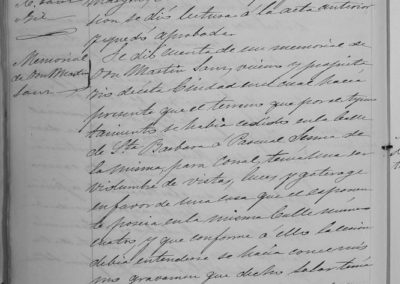 sion se dió lectura á la acta anterior
y quedó aprobada
Memorial
de Don Martin
Sanz
Se dió cuenta de un memorial de
Don Martin Sanz, vecino y propieta
rio de esta Ciudad en el cual hacia
presente que el terreno que por el Ayun
tamiento se habia cedido en la Calle
de Sta Barbara á Pascual de
la misma, para corral, tenia una ser
vidumbre de vistas, luces y goterage
en favor de una casa que el esponen
te poseia en la misma Calle número
cuatro, y que conforme á ello la cesion
debia entenderse se hacia con el mis
mo gravamen que dicho solar tenia